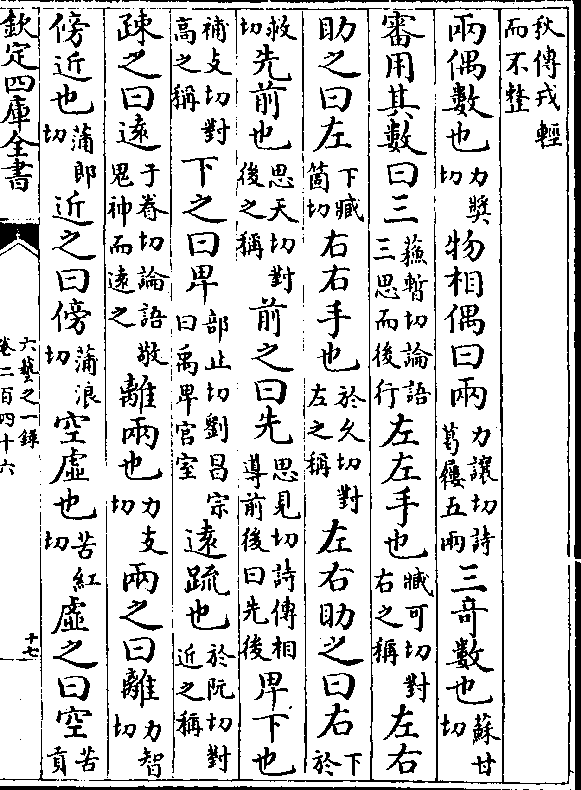 秋傳戎輕而不整
兩偶數也力奬切物相偶曰兩力讓切詩葛屨五兩三奇數也蘇甘切
審用其數曰三蘓暫切論語三思而後行左左手也臧可切對右之稱左右
助之曰左下臧箇切右右手也於久切對左之稱左右助之曰右下於
救切先前也思天切對後之稱前之曰先思見切詩傳相導前後曰先後卑下也
補攴切對高之稱下之曰卑部止切劉昌宗曰禹卑宫室逺疏也於阮切對近之稱
踈之曰逺于眷切論語敬鬼神而逺之離兩也力支切兩之曰離力智切
傍近也蒲郎切近之曰傍蒲浪切空虛也苦紅切虛之曰空苦貢
欽定四庫全書
六藝之一錄
卷二百四十六
十七